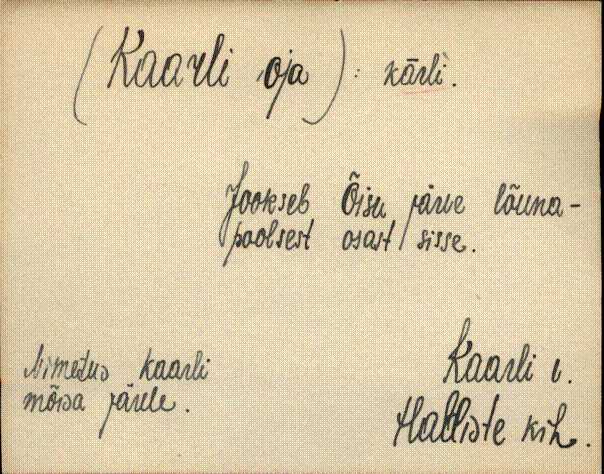 (Kaarli oja): kārli.
Jookseb Õisu järve lõuna-
poolsest osast sisse.
Nimetus kaarli
mõisa järele.
Kaarli v.
Halliste kih.